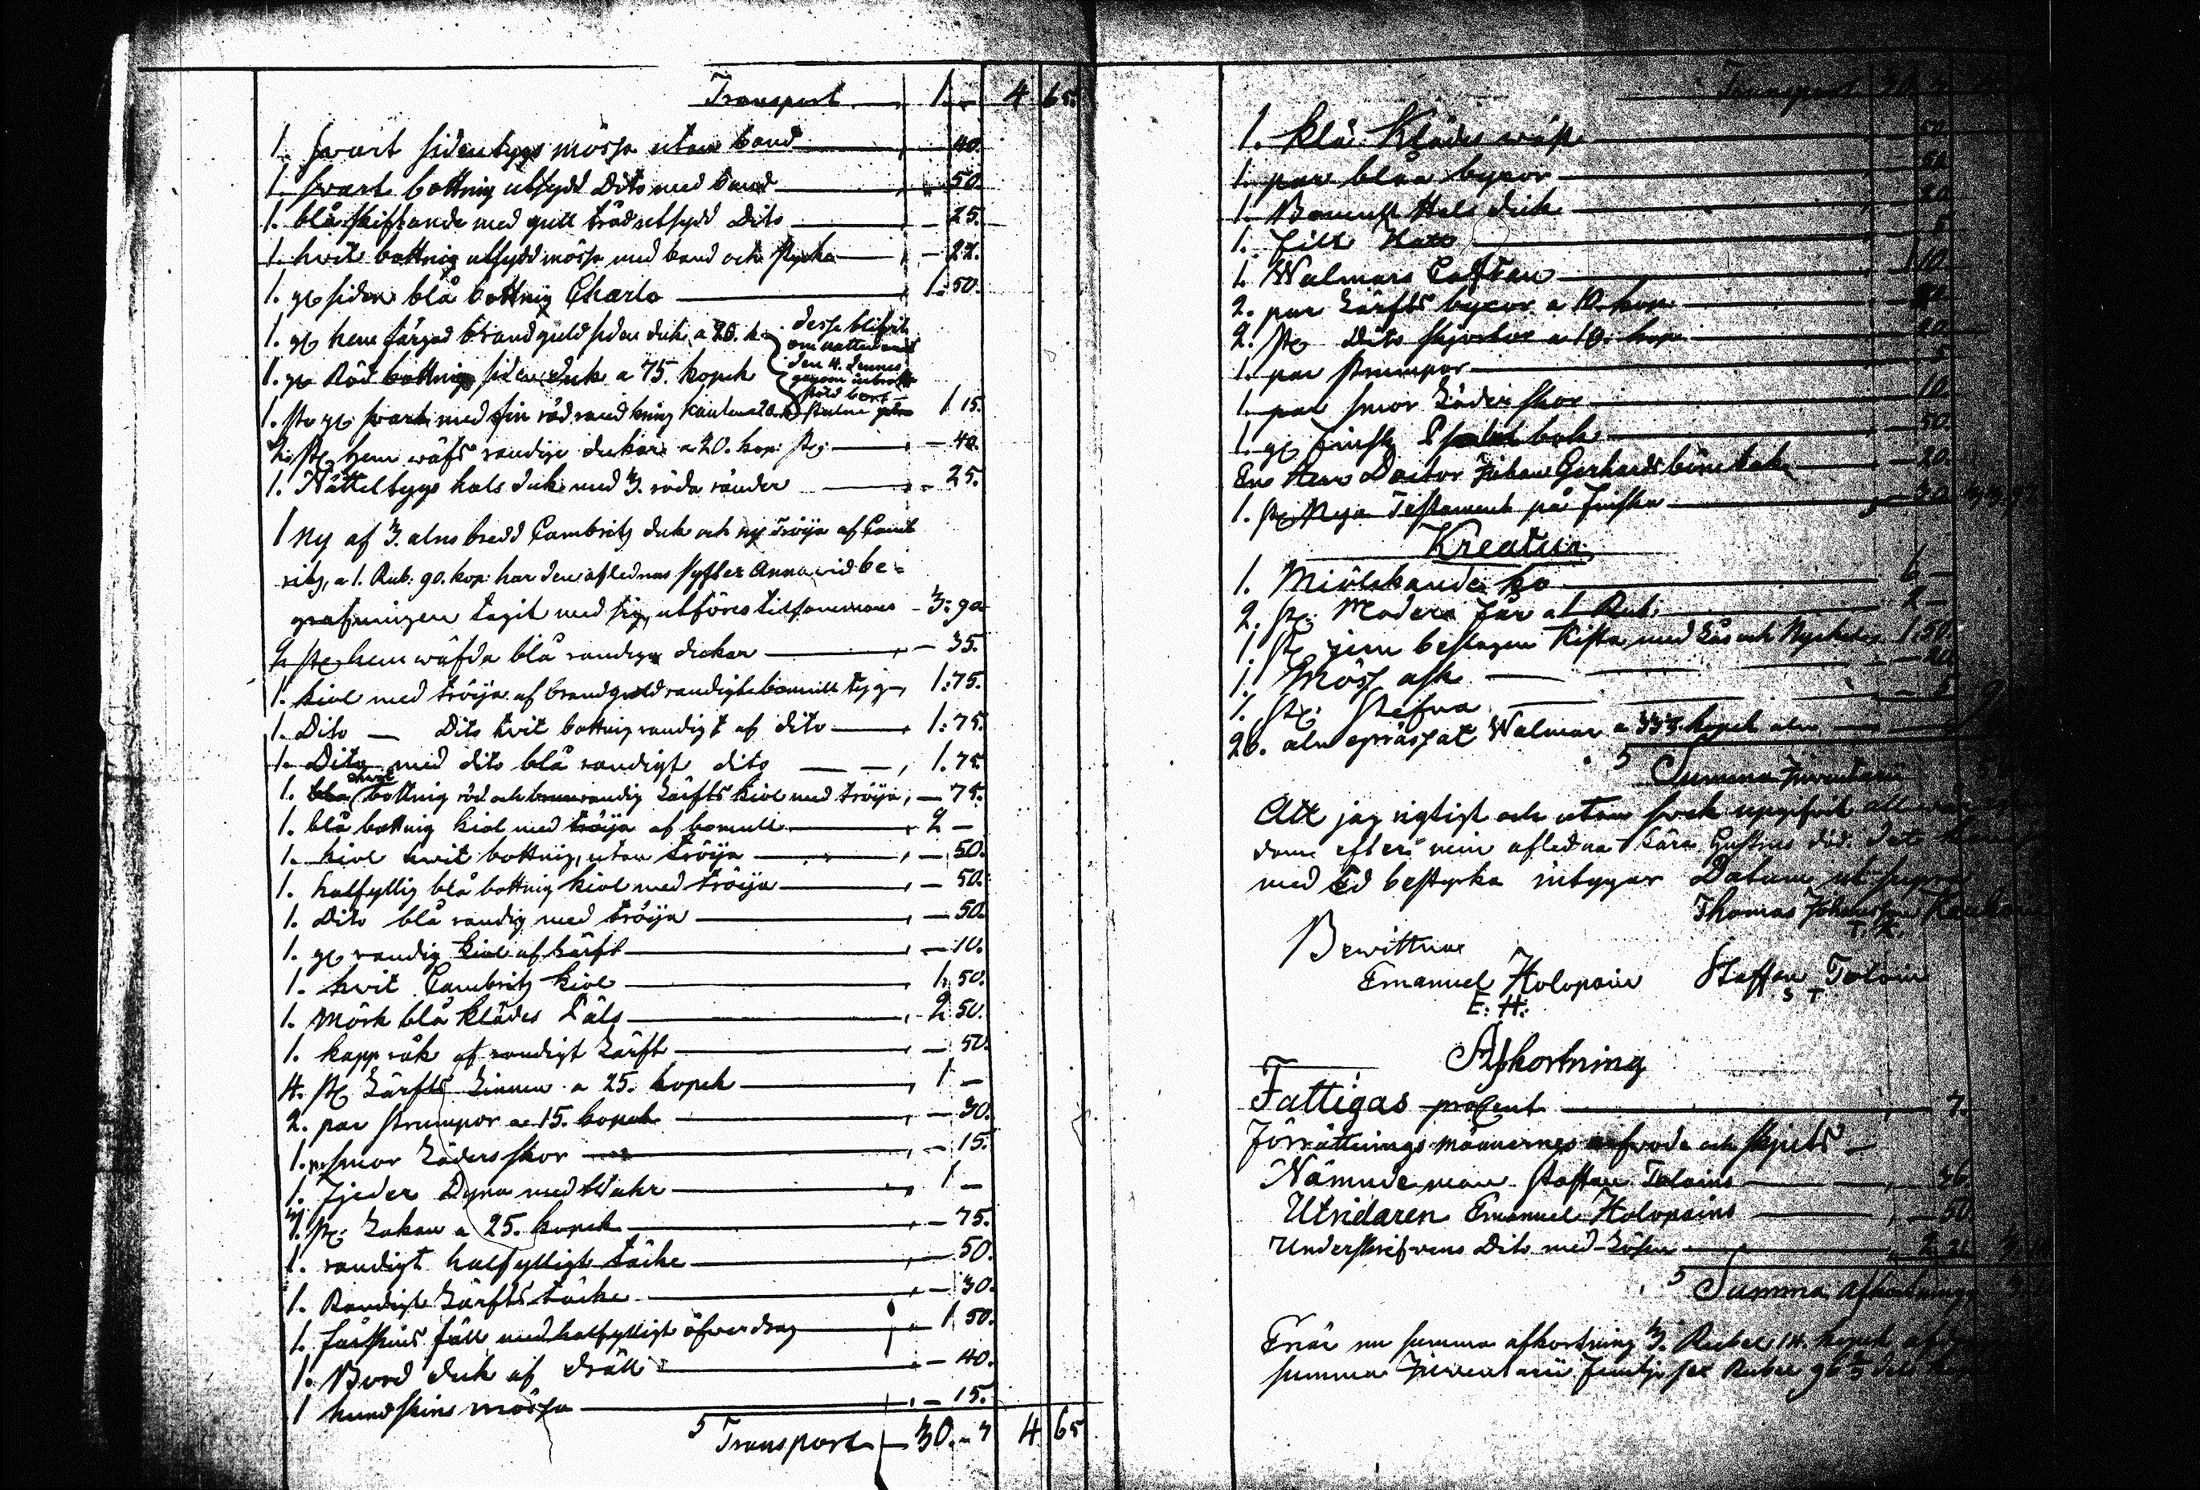 Transport 1. – 4 65.
1. svart sidentygs mössa utan band 40.
1. svart bottnig utsydd Dito med band 50
1. blå skiftande med gull tråd utsydd Dito – 25.
1. hvit bottnig utsydd mössa med band och stycke – 22.
1. gl siden blå bottnig Charlo 1. 50.
1. gl hem färgad brandguld siden duk a 20. k. desse blifvit om natten emot
1. gl Röd bottnig siden duk a 75. kopek den 4. dennes genom inbrott stöld bort
1. st gl svart med fin röd rand kring stulne 1 15.
2. st hem wäfs randige dukar a 20. kop: st: – 40.
1. Nätteltygs hals duk med 3. röda ränder – 25.
1 ny af 3. alns bredd Cambritz duk och ny Tröija af Camb
ritz, a 1. Rub: 90. kop: har den aflednas syster Anna vid be=
grafningen tagit med sig, utföres tilsammans – 3: 90
2 st hem wäfda blå randiga dukar – 35.
1. kiol med tröija af brandguld randigt bomull tyg 1:75.
1. Dito — Dito hvit bottnig randigt af dito 1:75.
1. Dito med dito blå randigt dito — —, 1. 75.
1. bottnig röd och brunrandig Lärfts kiol med tröija, – 75.
1. blå bottnig kiol med tröija af bomull 2 –
1. kiol hvit bottnig, utan tröija – 50.
1. halfyllig blå bottnig kiol med tröija – 50.
1. Dito blå randig med tröija – 50.
1. gl randig kiol af Lärft – 10.
1. hvit Cambritz kiol 1. 50.
1. Mörk blå klädes Päls 2 50.
1. kapp råk af randigt Lärft – 50.
4. st Lärfts Linnen a 25. kopek 1 –
2. par strumpor a 15. kopek – 30.
1. pr smor Läders skor – 15.
1. fjeder Dyna med Wahr 1 –
3. st: Lakan a 25. kopek – 75.
1. randigt halfylligt täcke – 50.
1. Randigt Lärfts täcke – 30.
1. fårskins fäll med halfylligt öfverdrag 1 50.
1. Bord duk af dräll – 40.
1 hundskins mössa – 15.
Transport – 30. – 7 4 65
Transport 30
1. blå Klädes wäst 50
1. par blåa byxor 50
1. Bomulls Hals duk 20
1. filt Hatt 5
1. Walmars Caftan 1 10.
2. par Lärfts byxor a 10. kop.
2. st Dito skjortor a 10. kop. 20
1. par strumpor 5
1. par smor Läder skor 10
1. gl Finsk Psalm bok 50.
En Herr Doctor Johan Gerhards böne bok – 20
1. st Nya Testament på finska – 30
Kreatur
1. Miölkande ko 6 –
2. st: Modera får a 1 Rub: 2 –
1 st jern beslagen kista med Lås och Nyckel 1. 50.
1. Möss ask — — 20
1. st: – 5
26. aln Walmar a 33⅓ kopek aln
Summa Inventarii
Att jag rigtigt och utan svek uppgifvit
dom efter min aflednas kära Hustrus död. det
med Ed bestyrka intygar Datum ut supra
Thomas Johansson
T. K.
Bewittnar
Emanuel Holopain Staffan Tolvain
E: H: S T
Afkortning
Fattigas procent 7.
Förrättnings männernes arfvode och skjuts –
Nämndeman Staffan Tolvains 36
Utridaren Emanuel Holopains – 50.
Underskrifvens Dito med Lösen 2 21
Summa afkortning
summa afkortning 3. Rubel 14. kopek
summa Inventarii Rubel